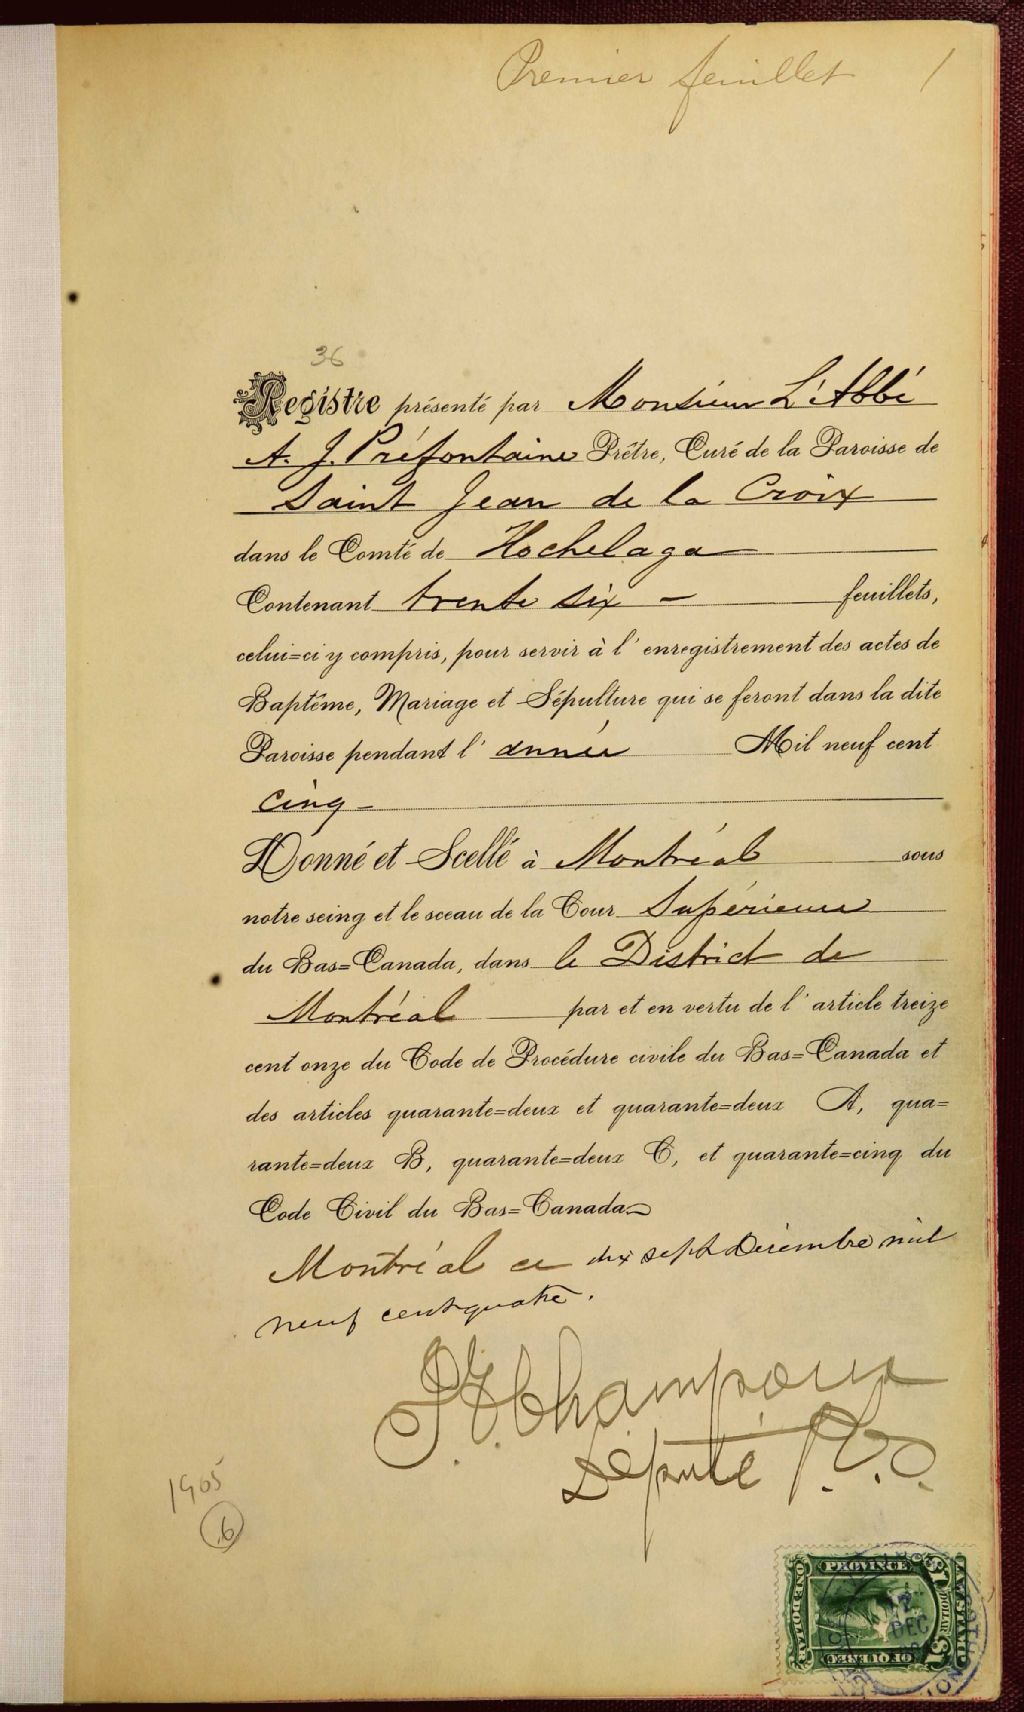 Premier feuillet 1
36
Registre présenté par Monsieur L'Abbé
A. J. Préfontaine Prêtre, Curé de la Paroisse de
Saint Jean de la Croix
dans le Comté de Hochelaga
Contenant trente six – feuillets,
celui=ci y compris, pour servir à l'enregistrement des actes de
Baptême, Mariage et Sépulture qui se feront dans la dite
Paroisse pendant l'année Mil neuf cent
cinq –
Donné et Scellé à Montréal sous
notre seing et le sceau de la Cour Supérieure
du Bas=Canada, dans le District de
Montréal par et en vertu de l'article treize
cent onze du Code de Procédure civile du Bas=Canada et
des articles quarante=deux et quarante=deux A, qua=
rante=deux B, quarante=deux C, et quarante=cinq du
Code Civil du Bas=Canada
Montréal ce dix sept Décembre mil
neuf cent quatre.
Champoux
Député P.C.S.
1905
6
PROVINCE
OF QUEBEC
ONE DOLLAR
LAW STAMP
$1 DOLLAR $1
DEC